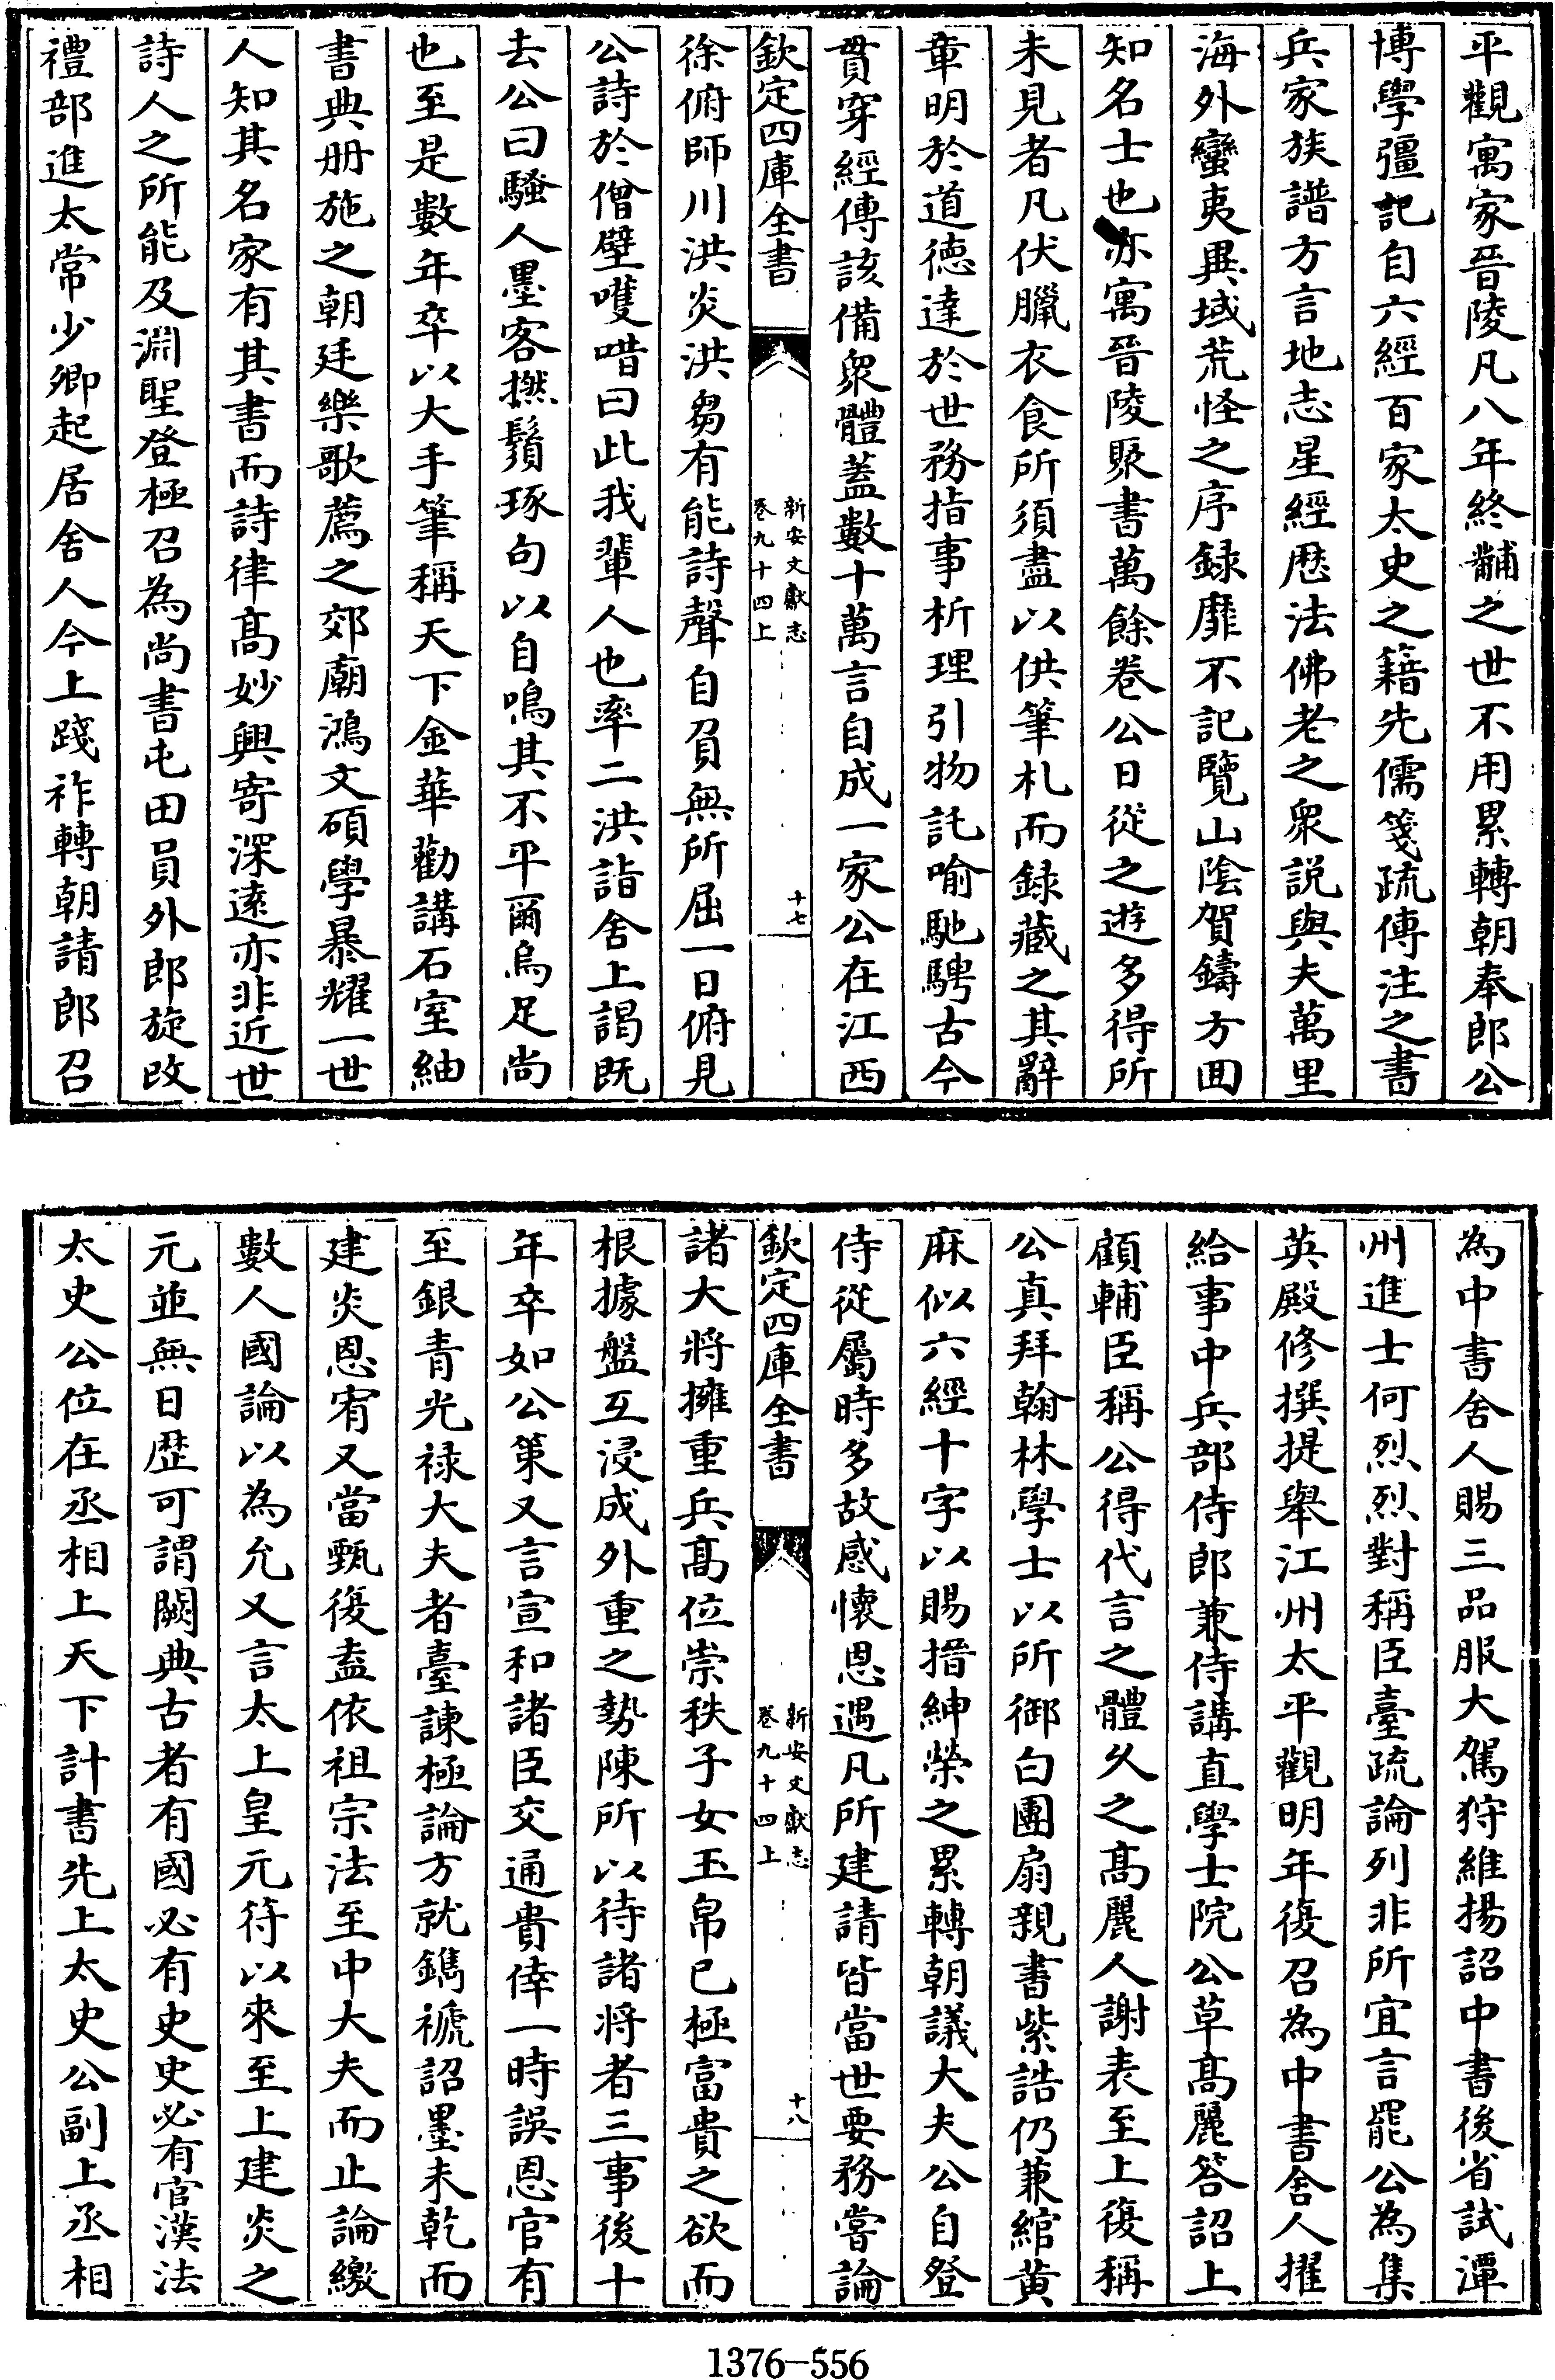 平觀寓家晉陵凡八年終黼之世不用累轉朝奉郎公
博學彊記自六經百家太史之籍先儒箋疏傳注之書
兵家族譜方言地志星經歴法佛老之衆説與夫萬里
海外蠻夷異域荒怪之序録靡不記覽山陰賀鑄方回
知名士也亦寓晉陵聚書萬餘卷公日從之遊多得所
未見者凡伏臘衣食所須盡以供筆札而録藏之其辭
章明於道德達於世務指事析理引物託喻馳騁古今
貫穿經傳該備衆體蓋數十萬言自成一家公在江西
欽定四庫全書
新安文獻志
卷九十四上
十七
徐俯師川洪炎洪芻有能詩聲自負無所屈一日俯見
公詩於僧壁嚄唶曰此我輩人也率二洪詣舍上謁既
去公曰騷人墨客撚鬚琢句以自鳴其不平爾烏足尚
也至是數年卒以大手筆稱天下金華勸講石室紬
書典册施之朝廷樂歌薦之郊廟鴻文碩學暴耀一世
人知其名家有其書而詩律髙妙興寄深逺亦非近世
詩人之所能及淵聖登極召為尚書屯田員外郎旋改
禮部進太常少卿起居舍人今上踐祚轉朝請郎召
為中書舍人賜三品服大駕狩維揚詔中書後省試潭
州進士何烈烈對稱臣臺疏論列非所宜言罷公為集
英殿修撰提舉江州太平觀明年復召為中書舍人擢
給事中兵部侍郎兼侍講直學士院公草髙麗答詔上
顧輔臣稱公得代言之體乆之髙麗人謝表至上復稱
公真拜翰林學士以所御白團扇親書紫誥仍兼綰黄
麻似六經十字以賜搢紳榮之累轉朝議大夫公自登
侍從屬時多故感懷恩遇凡所建請皆當世要務嘗論
欽定四庫全書
新安文獻志
卷九十四上
十八
諸大將擁重兵髙位崇秩子女玉帛已極富貴之欲而
根據盤互浸成外重之勢陳所以待諸將者三事後十
年卒如公䇿又言宣和諸臣交通貴倖一時誤恩官有
至銀青光禄大夫者臺諫極論方就鐫褫詔墨未乾而
建炎恩宥又當甄復盍依祖宗法至中大夫而止論繳
數人國論以為允又言太上皇元符以來至上建炎之
元並無日歴可謂闕典古者有國必有史史必有官漢法
太史公位在丞相上天下計書先上太史公副上丞相
1376-556